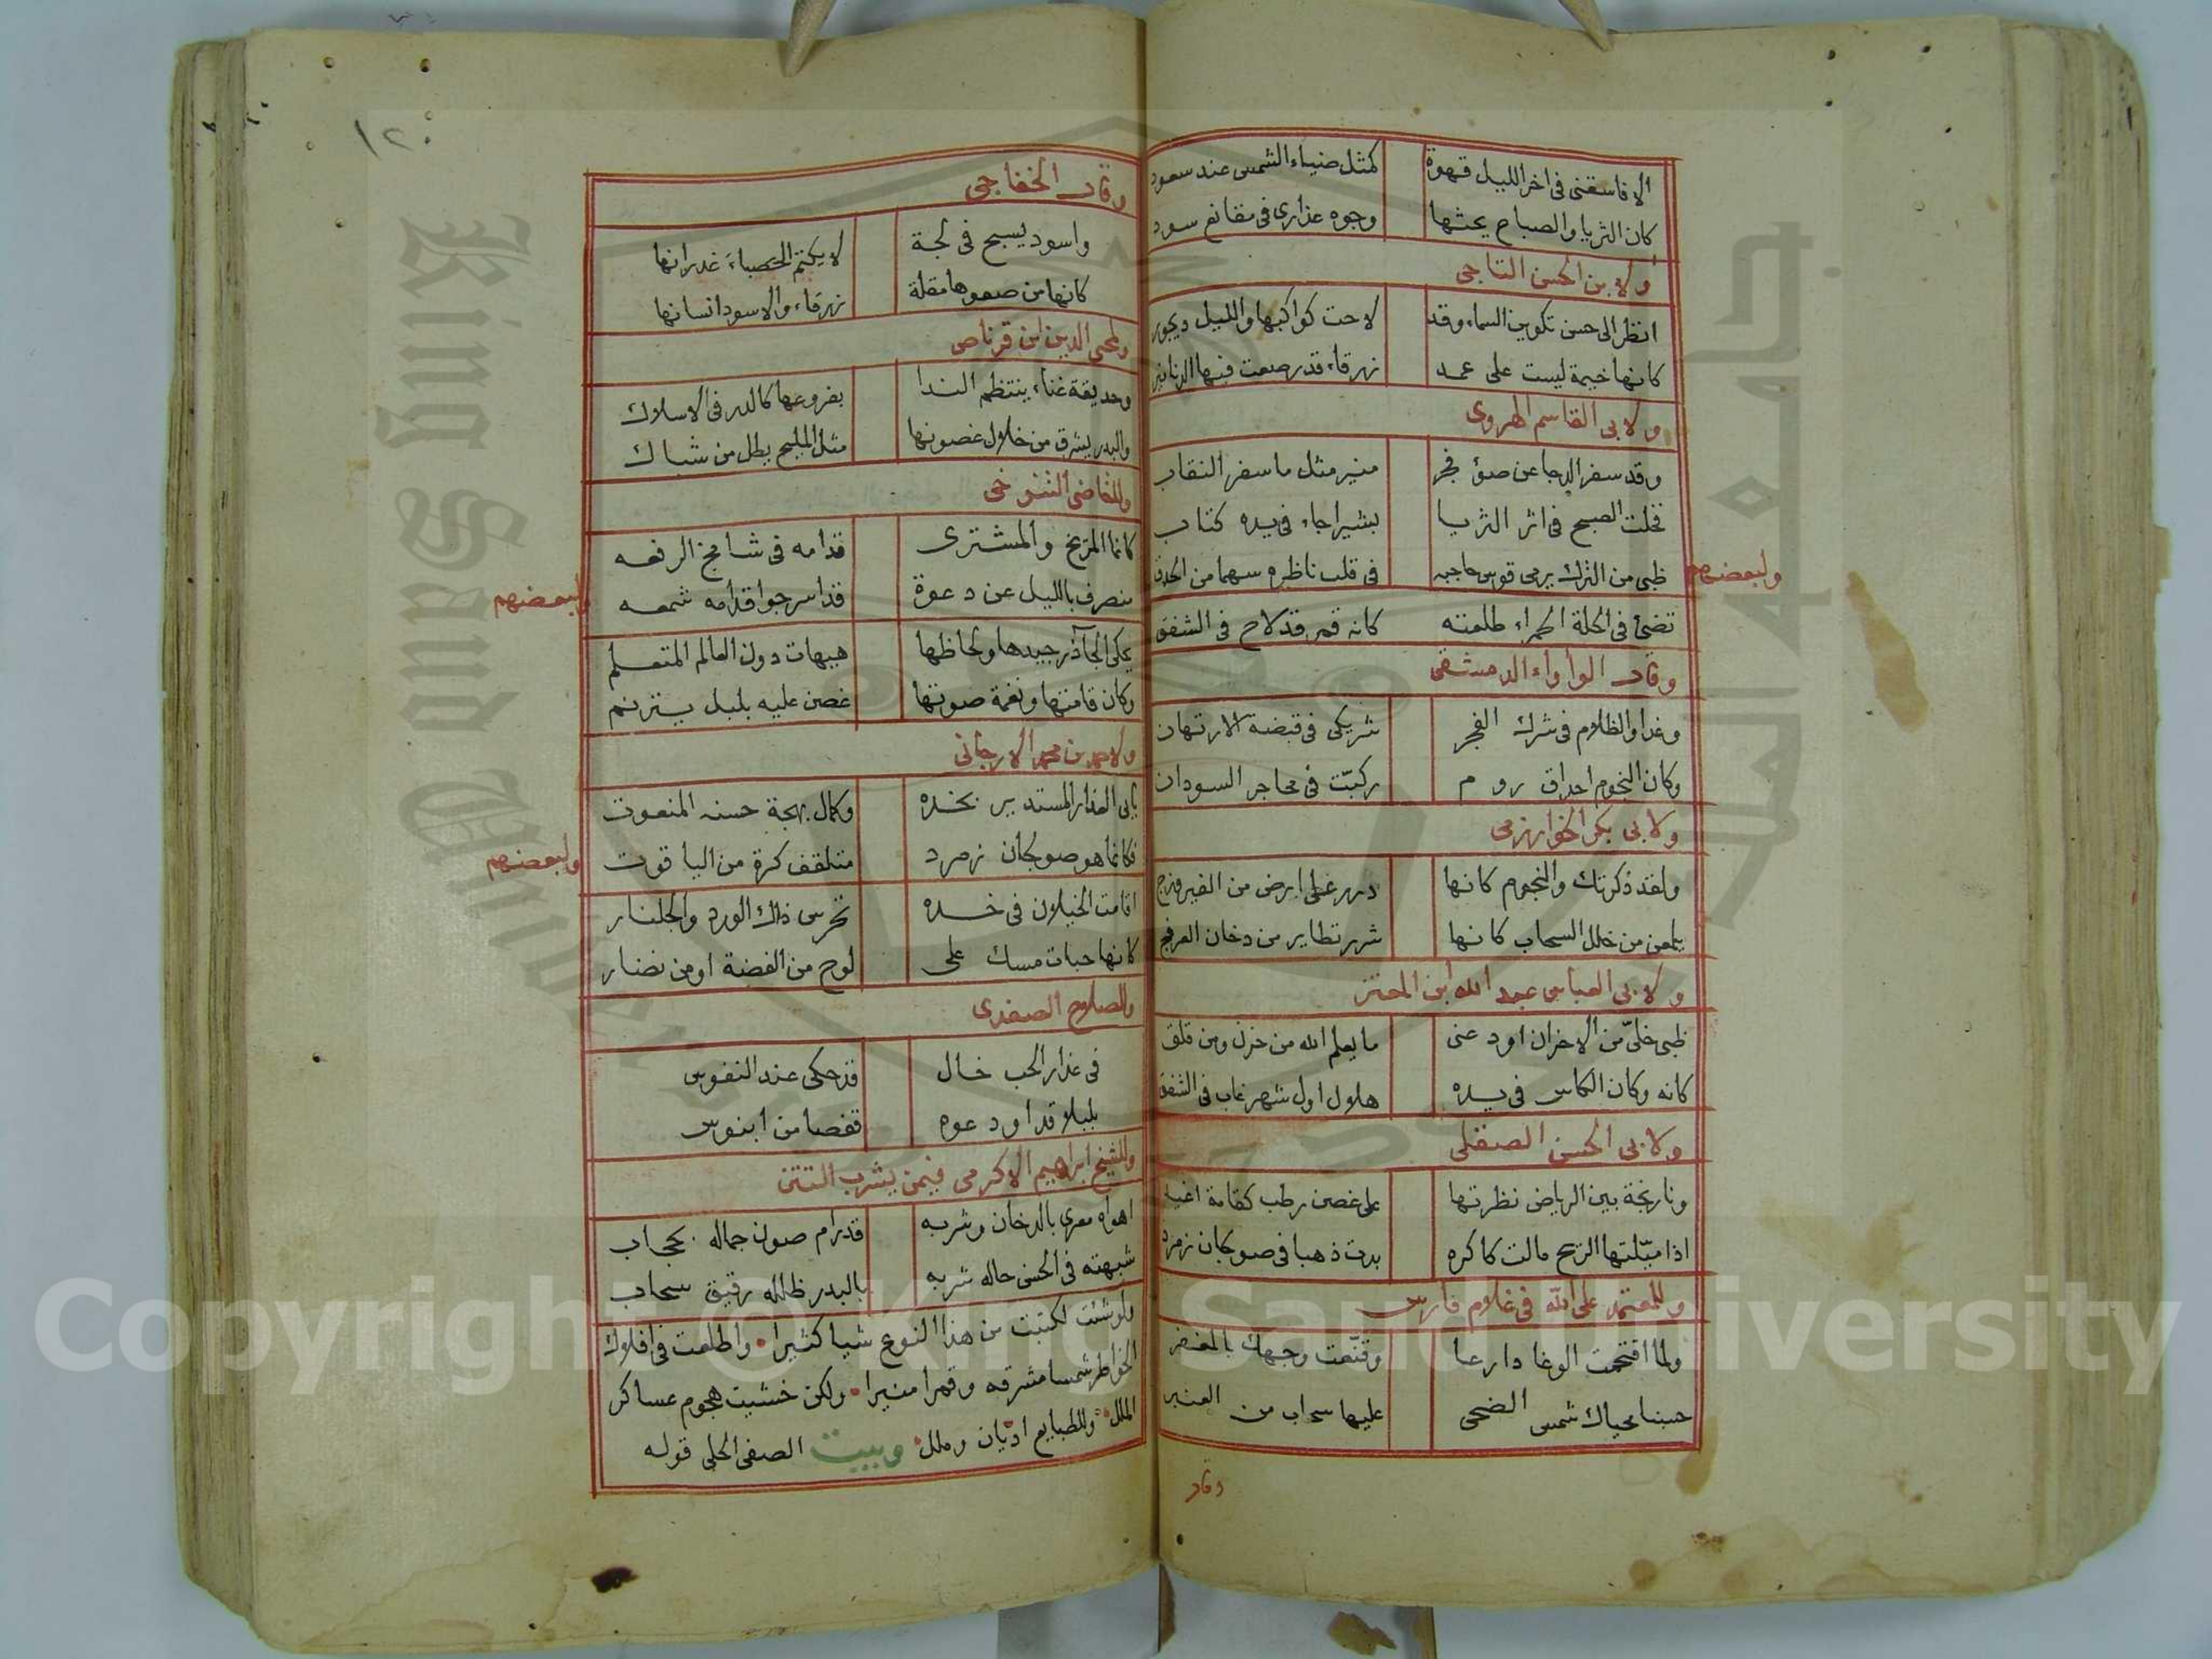 الا فاسقنى فى اخر الليل قهوة كمثل ضياء الشمس عند سعود
كان الثريا والصباح يحثها وجوه عذارى فى مقانع سود
ولابن الحسن التاجى
انظر الى حسن تكوين السماء وقد لاحت كواكبها والليل ديجور
كانها خيمة ليست على عمد زرقاء قد رصعت فيها الدنانير
ولابى القاسم الهروى
وقد سفر الدجا عن ضؤ فجر منير مثل ما سفر النقاب
فخلت الصبح فى اثر الثريا بشيرا جاء فى يده كتاب
ولبعضهم
ظبى من الترك يرمى قوس حاجبه فى قلب ناظره سهما من الحدق
تضئ فى الحلة الحمراء طلعته كانه قمر قد لاح فى الشفق
وقال الواواء الدمشقى
وغدا والظلام فى شرك الفجر شريكى فى قبضة الارتهان
وكان النجوم احداق روم ركبّت فى محاجر السودان
ولابى بكر الخوارزمى
ولقد ذكرتك والنجوم كانها درر على ارض من الفيروزج
يلمعن من خلل السحاب كانها شرر تطاير من دخان العرفج
ولابى العباس عبد الله ابن المعتز
ظبى خلىّ من الاحزان اودعنى ما يعلم الله من حزن ومن قلق
كانه وكان الكاس فى يده هلال اول شهر غاب فى الشفق
ولابى الحسن الصقلى
ونارنجة بين الرياض نظرتها على غصن رطب كقامة اغيد
اذا ميّلتها الريح مالت كاكره بدت ذهبا فى صوكجان زمرد
وللمعتمد على الله فى غلام فارس
ولما اقتحمت الوغا دارعا وقنّعت وجهك بالمغفر
حسبنا محياك شمس الضحى عليها سحاب من العنبر
وقال
١٢٠
وقال الخفاجى
واسود يسبح فى لجة لا يكتم الحصباءَ غدرانها
كانها من صفوها مقلة زرقاء والاسود انسانها
ولمحى الدين ابن قرناص
وحديقة غناء ينتظم الندا بفروعها كالدر فى الاسلاك
والبدر يشرق من خلال غصونها مثل المليح يطل من شباك
وللقاضى التنوخى
كانما المريخ والمشترى قدامه فى شامخ الرفعه
منصرف بالليل عن دعوة قد اسرجوا قدامه شمعه
ولبعضهم
يحكى الجآذر جيدها ولحاظها هيهات دون العالم المتعلم
وكان قامتها ونغمة صوتها غصن عليه بلبل يترنم
ولاحمد بن محمد الارجانى
بابى العذار المستدير بخده وكمال بهجة حسنه المنعوت
فكانما هو صوكجان زمرد متلقف كرة من الياقوت
ولبعضهم
اقامت الخيلان فى خده تحرس ذاك الورد والجلنار
كانها حبات مسك على لوح من الفضة او من نضار
وللصلاح الصفدى
فى عذار الحب خال قد حكى عند النفوس
بلبلا قد اودعوه قفصا من ابنوس
وللشيخ ابراهيم الاكرمى فيمن يشرب التتن
اهواه مغرى بالدخان وشربه قد رام صون جماله بحجاب
شبهته فى الحسن حاله شربه بالبدر ظلله رقيق سحاب
ولو شئت لكتبت من هذا النوع شيا كثيرا • واطلعت فى افلاك
الخواطر شمسا مشرقه وقمرا منيرا • ولكن خشيت هجوم عساكر
الملل • وللطبايع اديان وملل • وبيت الصفى الحلى قوله
King Saud University
Copyright © King Saud University